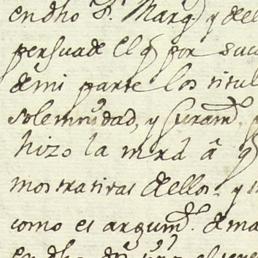 en dho Sr. Marqs. y del
persuade el q̃ por suc
de mi parte los titul
solemnidad, y Juramto.
hizo la mrd â q
mostratiras dellos. y
como es argumto. de ma